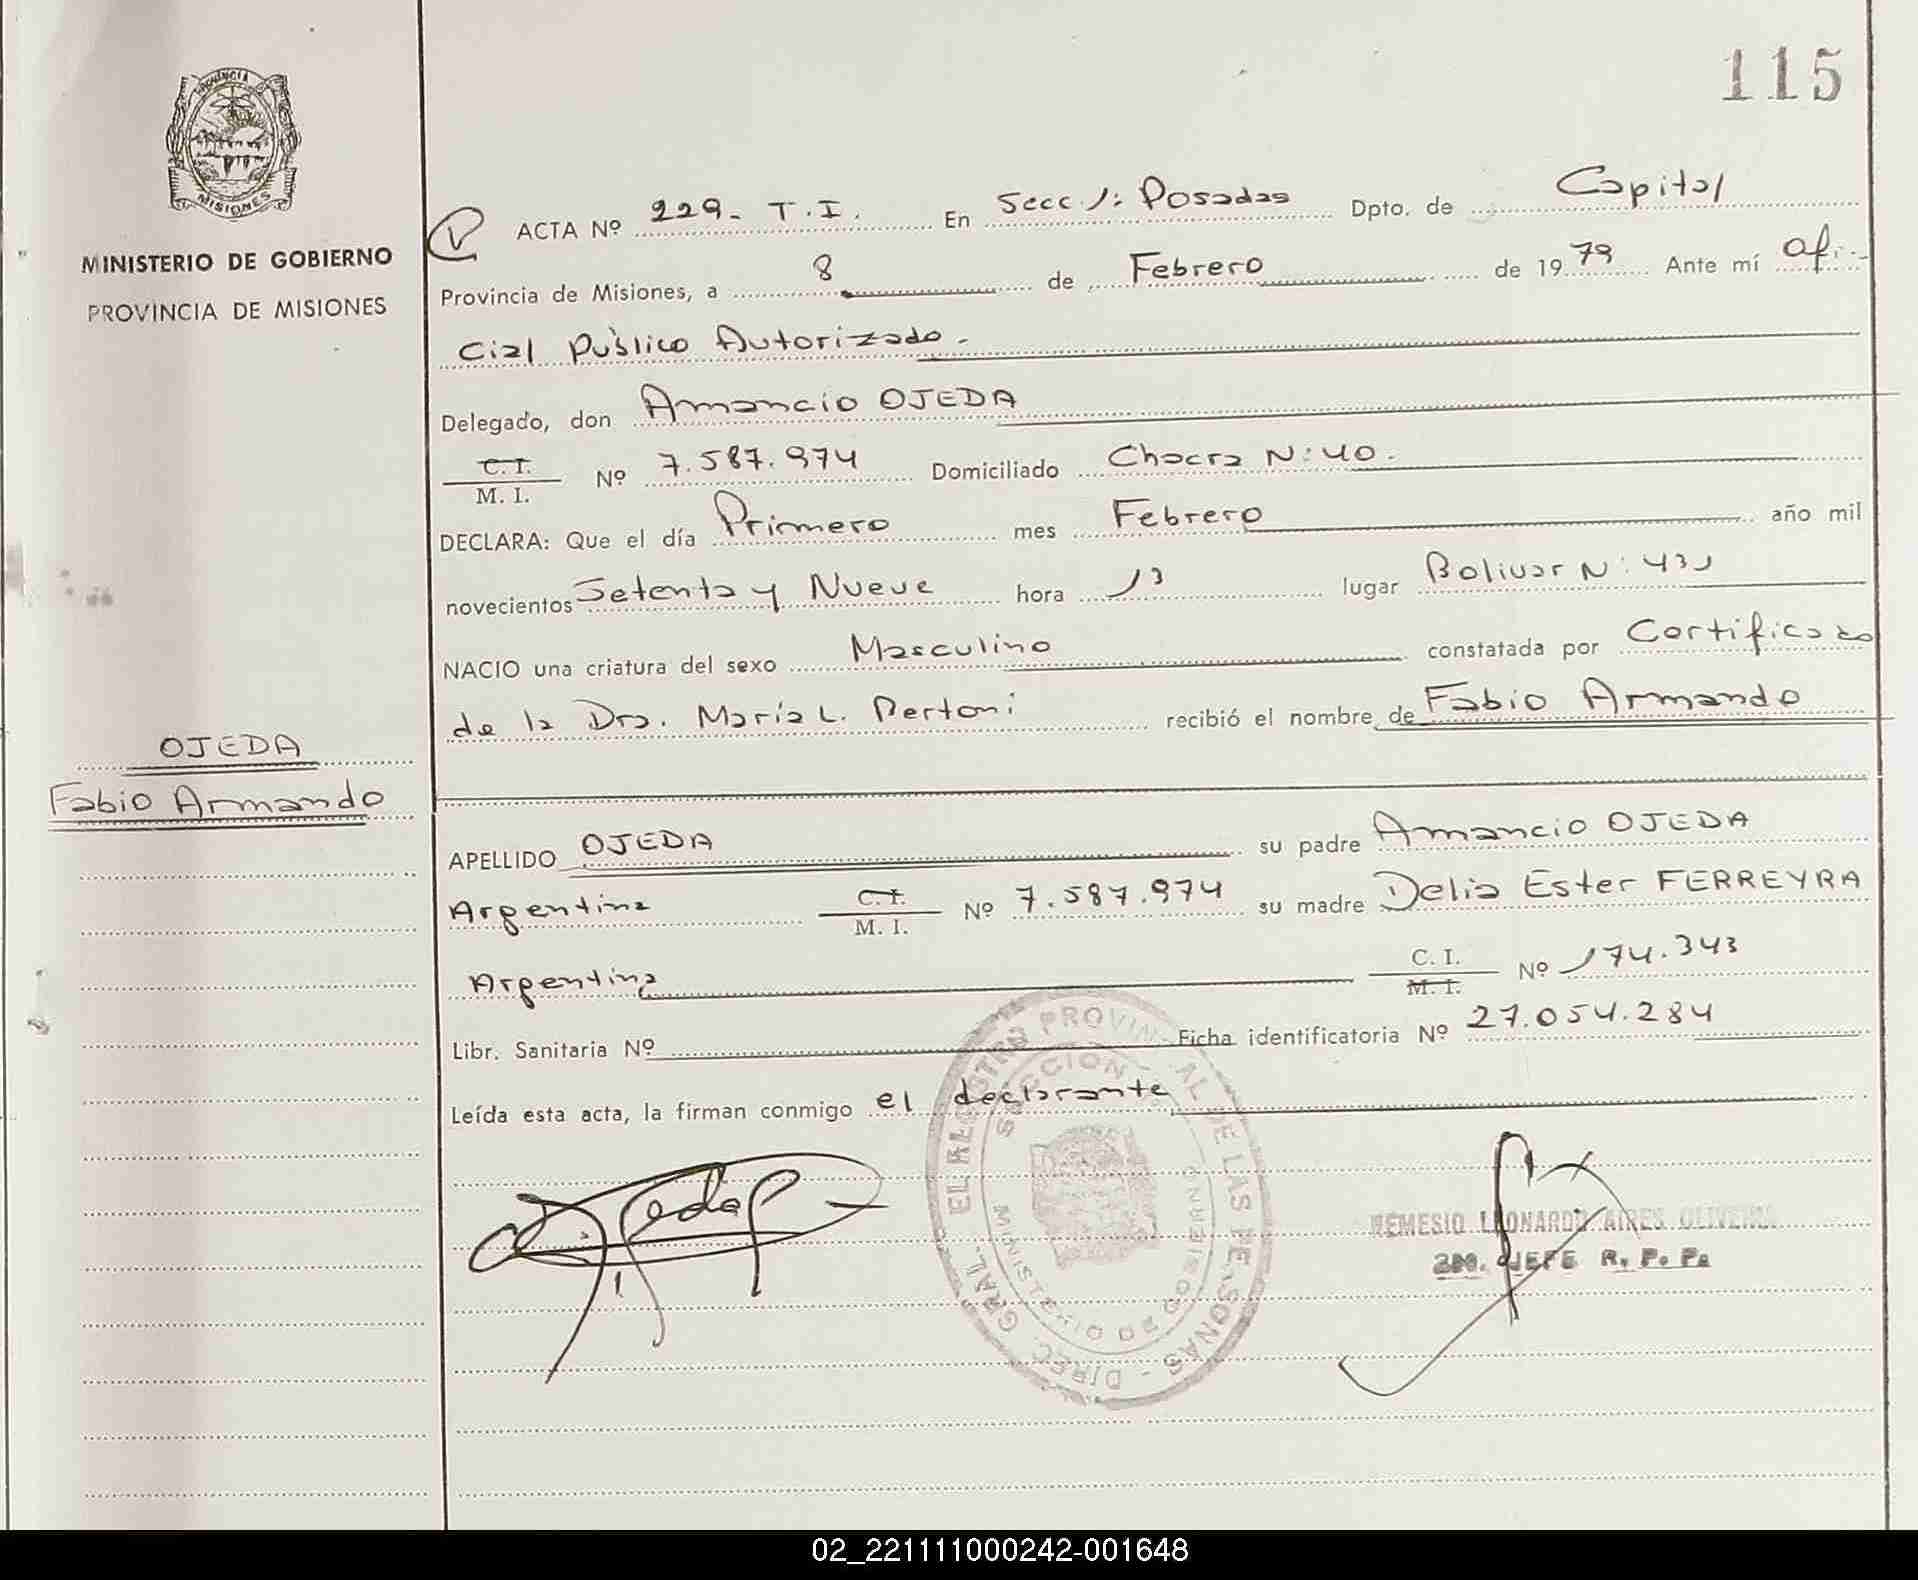 115
PROVINCIA
MISIONES
MINISTERIO DE GOBIERNO
PROVINCIA DE MISIONES
ACTA Nº 229- T.I. En Secc 1: Posadas Dpto. de Capital
Provincia de Misiones, a 8 de Febrero de 19 79 Ante mí Ofi-
cial Público Autorizado-
Delegado, don Amancio OJEDA
C.I. M. I. Nº 7.587.974 Domiciliado Chacra N:40.
DECLARA: Que el día Primero mes Febrero año mil
novecientos Setenta y Nueve hora 13 lugar Bolivar N: 431
NACIO una criatura del sexo Masculino constatada por Certificado
de la Dra. María L. Bertoni recibió el nombre de Fabio Armando
OJEDA
Fabio Armando
APELLIDO OJEDA su padre Amancio OJEDA
Argentina C.I. M. I. Nº 7.587.974 su madre Delia Ester FERREYRA
Argentina C. I. M. I. Nº 174.343
Libr. Sanitaria Nº Ficha identificatoria Nº 27.054.284
Leída esta acta, la firman conmigo el declarante
DIREC. GRAL. EL REGISTRO PROVINCIAL DE LAS PERSONAS -
SECCION
MINISTERIO DE GOBIERNO
REMESIO LEONARDO AIRES OLIVEIRA
JEFE R. P. P.
02_221111000242-001648